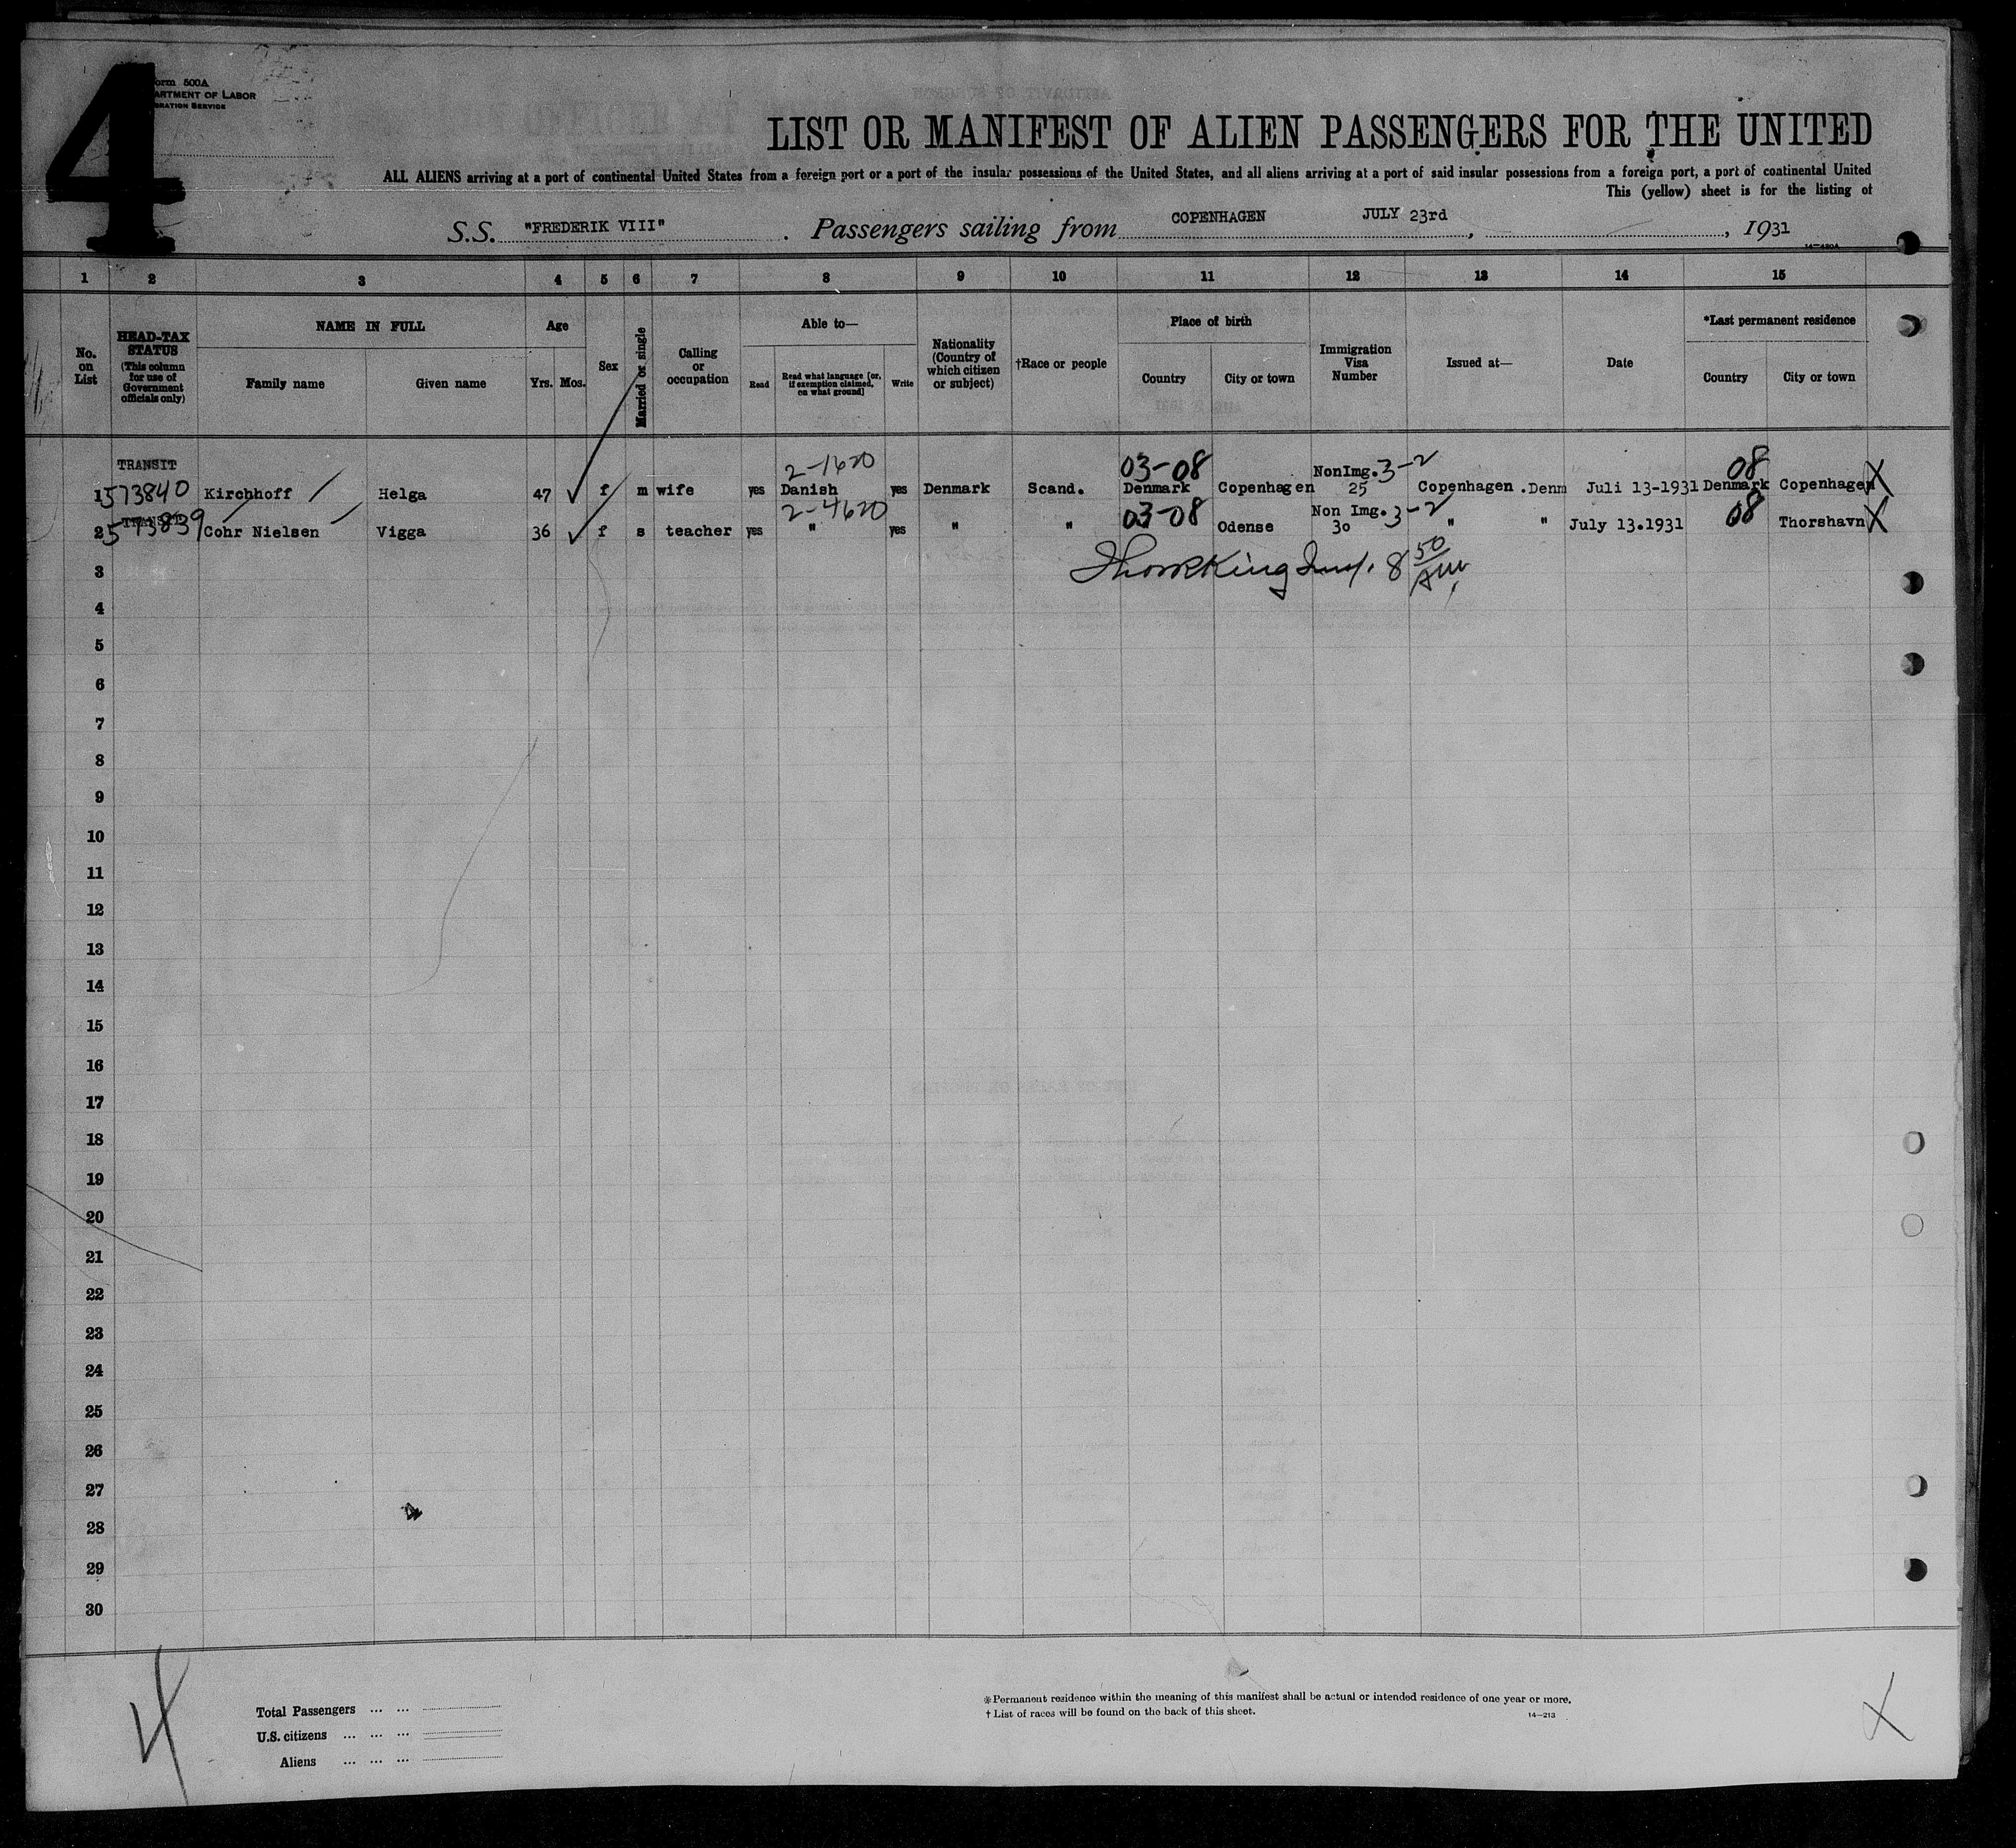 4
orm 500A
ARTMENT OF LABOR
GRATION SERVICE
LIST OR MANIFEST OF ALIEN PASSENGERS FOR THE UNITED
ALL ALIENS arriving at a port of continental United States from a foreign port or a port of the insular possessions of the United States, and all aliens arriving at a port of said insular possessions from a foreign port, a port of continental United
This (yellow) sheet is for the listing of
S.S. "FREDERIK VIII" . Passengers sailing from COPENHAGEN JULY 23rd , , 1931
14-480A
1 2 3 4 5 6 7 8 9 10 11 12 13 14 15
No. on List
HEAD-TAX STATUS (This column for use of Government officials only)
NAME IN FULL
Family name Given name
Age
Yrs. Mos.
Sex
Married or single
Calling or occupation
Able to—
Read
Read what language [or, if exemption claimed, on what ground]
Write
Nationality (Country of which citizen or subject)
†Race or people
Place of birth
Country City or town
Immigration Visa Number
Issued at—
Date
*Last permanent residence
Country City or town
TRANSIT 2-1620 03-08 NonImg. 3-2 08
1 573840 Kirchhoff Helga 47 f m wife yes Danish yes Denmark Scand. Denmark Copenhagen 25 Copenhagen .Denm Juli 13-1931 Denmark Copenhagen X
TRANSIT 2-4620 03-08 Non Img. 3-2 08
2 573839 Cohr Nielsen Vigga 36 f s teacher yes " yes " " Odense 30 " " July 13.1931 Thorshavn X
3 King 8 50 AM
4
5
6
7
8
9
10
11
12
13
14
15
16
17
18
19
20
21
22
23
24
25
26
27
28
29
30
4
X
Total Passengers ... ...
U.S. citizens ... ... ...
Aliens ... ... ...
*Permanent residence within the meaning of this manifest shall be actual or intended residence of one year or more.
† List of races will be found on the back of this sheet.
14-213